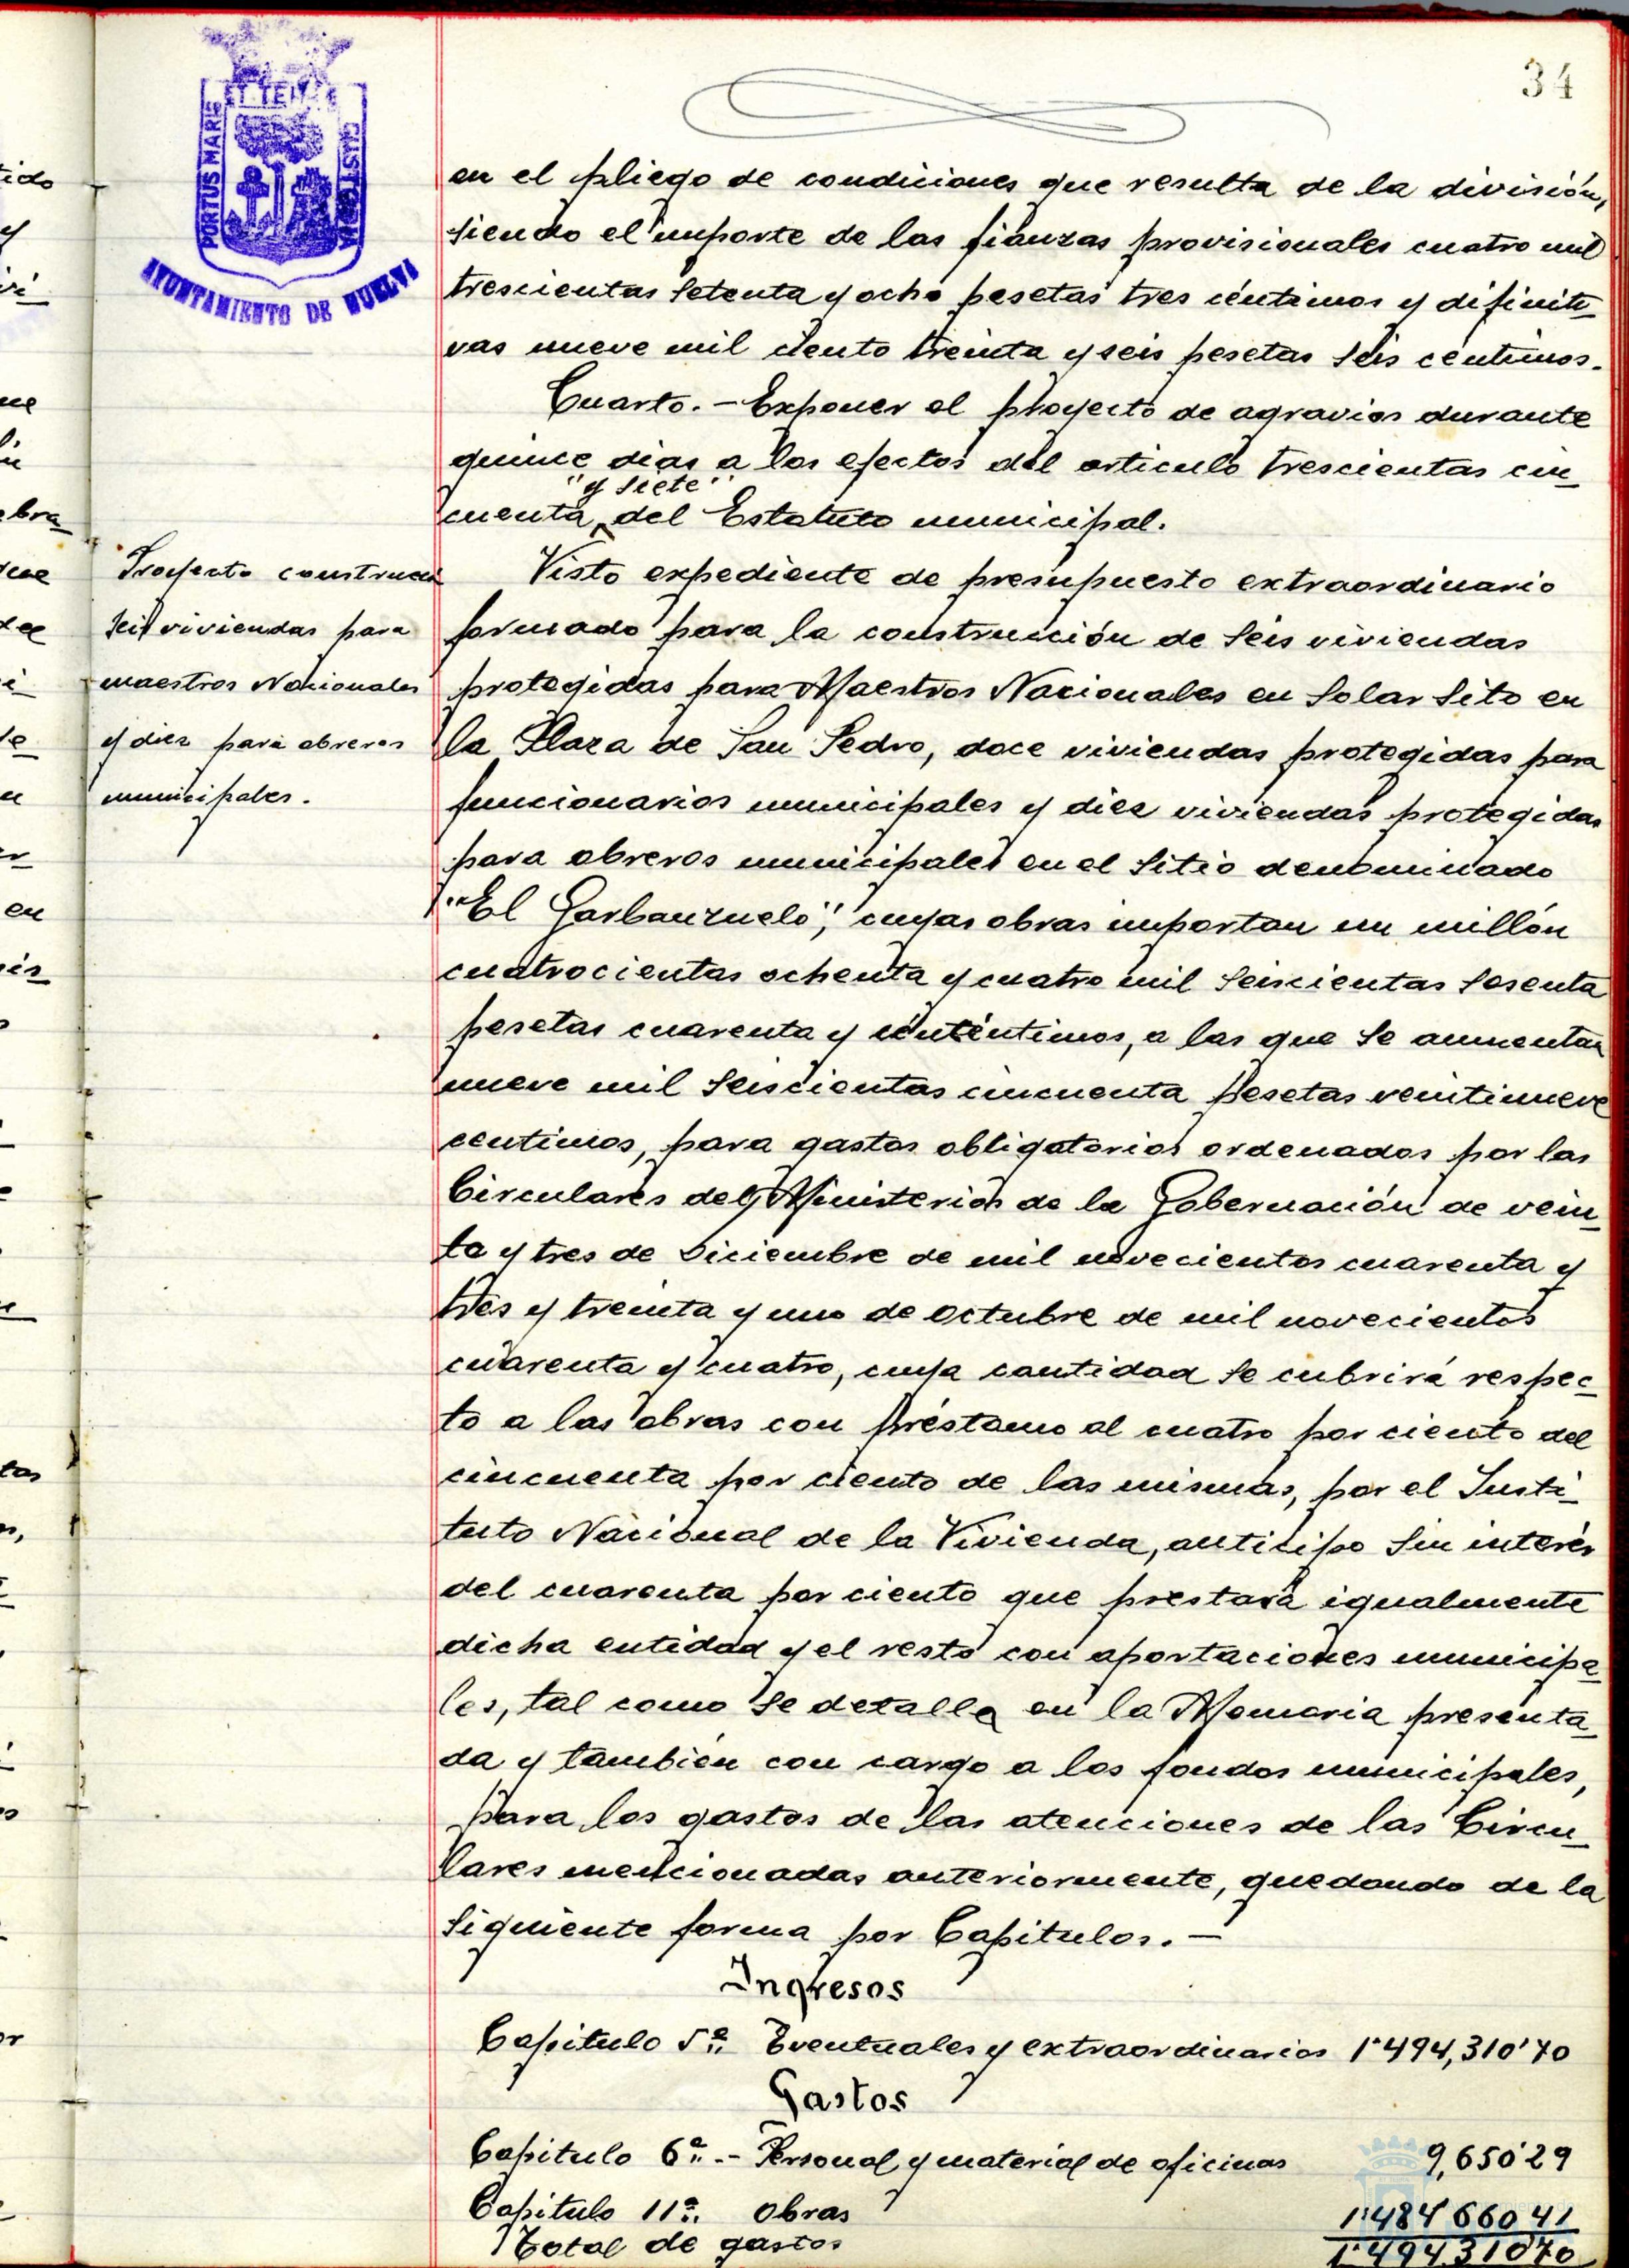 34
PORTUS MARIS
ET TERRE
CUSTODIA
AYUNTAMIENTO DE HUELVA
en el pliego de condiciones que resulta de la división,
siendo el importe de las fianzas provisionales cuatro mil
trescientas setenta y ocho pesetas tres céntimos y difiniti-
vas nueve mil ciento treinta y seis pesetas seis céntimos.
Cuarto.- Exponer el proyecto de agravios durante
quince dias a los efectos del articulo trescientas cin-
"y siete"
cuenta del Estatuto municipal.
Proyecto construcci
seis viviendas para
maestros Nacionales
y diez para obreros
municipales.
Visto expediente de presupuesto extraordinario
formado para la construcción de seis viviendas
protegidas para Maestros Nacionales en solar sito en
la Plaza de San Pedro, doce viviendas protegidas para
funcionarios municipales y diez viviendas protegidas
para obreros municipales en el sitio denominado
"El Garbanzuelo", cuyas obras importan un millón
cuatrocientas ochenta y cuatro mil seiscientas sesenta
pesetas cuarenta y céntimos, a las que se aumentan
nueve mil seiscientas cincuenta pesetas veintinueve
centimos, para gastos obligatorios ordenados por las
Circulares del Ministerio de la Gobernación de vein-
ta y tres de Diciembre de mil novecientos cuarenta y
tres y treinta y uno de octubre de mil novecientos
cuarenta y cuatro, cuya cantidad se cubrirá respec-
to a las obras con préstamo al cuatro por ciento del
cincuenta por ciento de las mismas, por el Insti-
tuto Nacional de la Vivienda, anticipo sin interés
del cuarenta por ciento que prestará igualmente
dicha entidad y el resto con aportaciones municipa-
les, tal como se detalla en la Memoria presenta-
da y también con cargo a los fondos municipales,
para los gastos de las atenciones de las Circu-
lares mencionadas anteriormente, quedando de la
siguiente forma por Capitulos.-
Ingresos
Capitulo 5º. Eventuales y extraordinarios 1'494,310'70
Gastos
Capitulo 6º.- Personal y material de oficinas 9,650'29
Capitulo 11º. Obras 1'484'660'41
Total de gastos 1'494.310'70